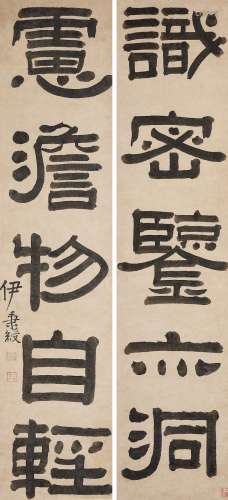 識密鑒亦洞
慮澹物自輕
伊秉綬